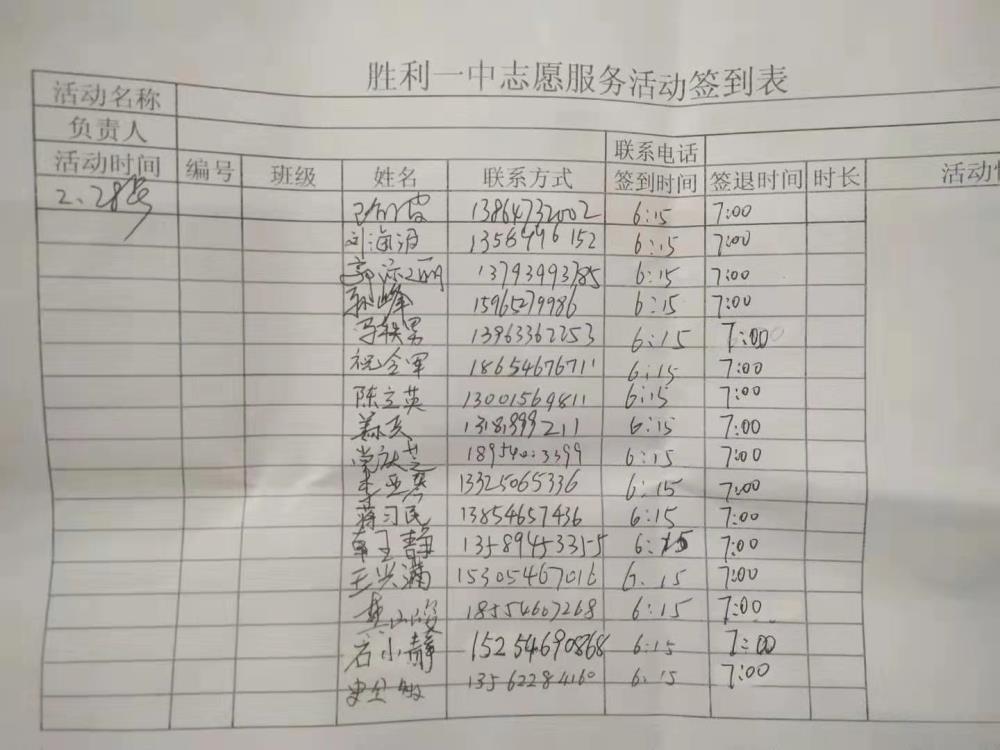 胜利一中志愿服务活动签到表
活动名称
负责人 联系电话
活动时间 编号 班级 姓名 联系方式 签到时间 签退时间 时长
2、28 13864732002 6:15 7:00
刘海涓 1358496152 6:15 7:00
13793993785 6:15 7:00
孙峰 15965279986 6:15 7:00
冯轶男 13963362253 6:15 7:00
祝全军 18654676711 6:15 7:00
陈立英 13001569811 6:15 7:00
13181999211 6:15 7:00
6:15 7:00
13325065336 6:15 7:00
蒋习民 13854657436 6:15 7:00
静 13589453355 6:15 7:00
王兴满 15305467016 6:15 7:00
18554607268 6:15 7:00
石小静 15254690868 6:15 7:00
13562284160 6:15 7:00